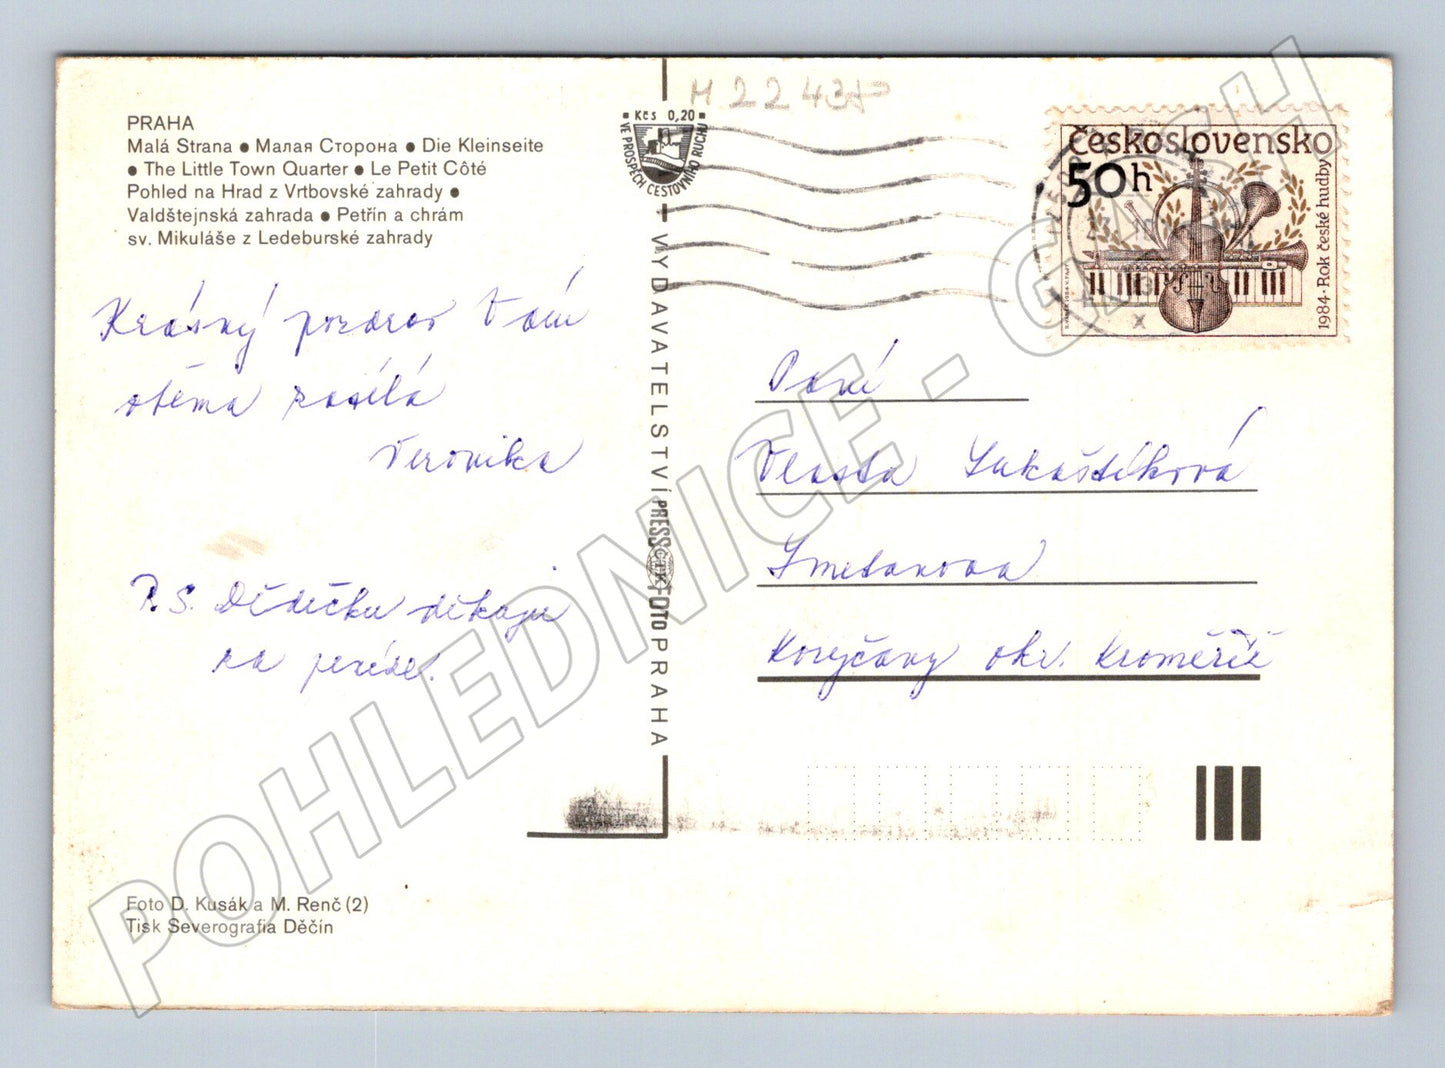 PRAHA
Malá Strana ● Малая Сторона ● Die Kleinseite
● The Little Town Quarter ● Le Petit Côté
Pohled na Hrad z Vrtbovské zahrady ●
Valdštejnská zahrada ● Petřín a chrám
sv. Mikuláše z Ledeburské zahrady
Krásný pozdrav Vám
oběma zasílá
Veronika
P.S. Dědečku děkuji
za
Foto D. Kusák a M. Renč (2)
Tisk Severografia Děčín
Kčs 0,20
VE PROSPĚCH CESTOVNÍHO RUCHU
VYDAVATELSTVÍ PRESSFOTO PRAHA
ČTK
M 22431
Československo
50h
1984 · Rok české hudby
Paní
Vlasta Lukaštíková
Smetanova
Koryčany okr. Kroměříž
POHLEDNICE - GMCH